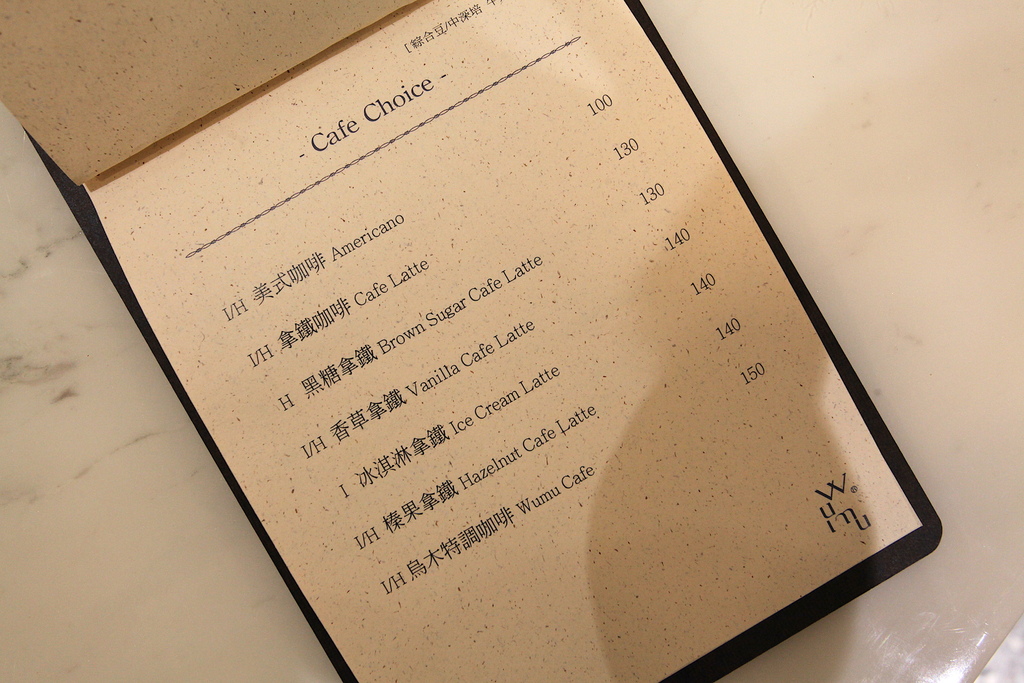 [ 綜合豆/中深培
- Cafe Choice -
I/H 美式咖啡 Americano 100
I/H 拿鐵咖啡 Cafe Latte 130
H 黑糖拿鐵 Brown Sugar Cafe Latte 130
I/H 香草拿鐵 Vanilla Cafe Latte 140
I 冰淇淋拿鐵 Ice Cream Latte 140
I/H 榛果拿鐵 Hazelnut Cafe Latte 140
I/H 烏木特調咖啡 Wumu Cafe 150
Wumu®